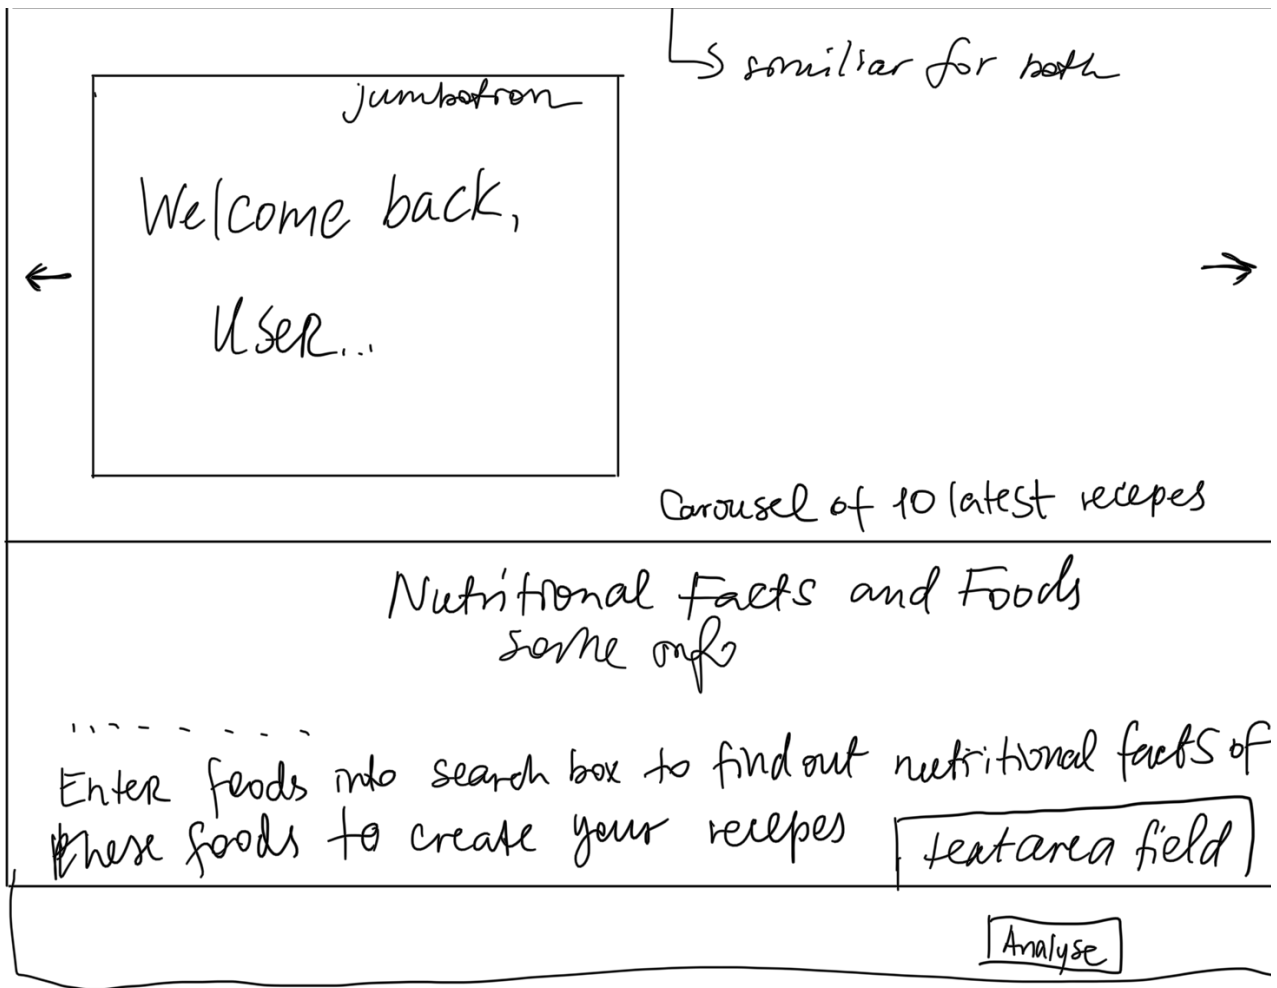 similiar for both
jumbotron
Welcome back,
User...
Carousel of 10 latest recepes
Nutritional Facts and Foods
some info
Enter foods into search box to find out nutritional facts of
these foods to create your recepes
textarea field
Analyse